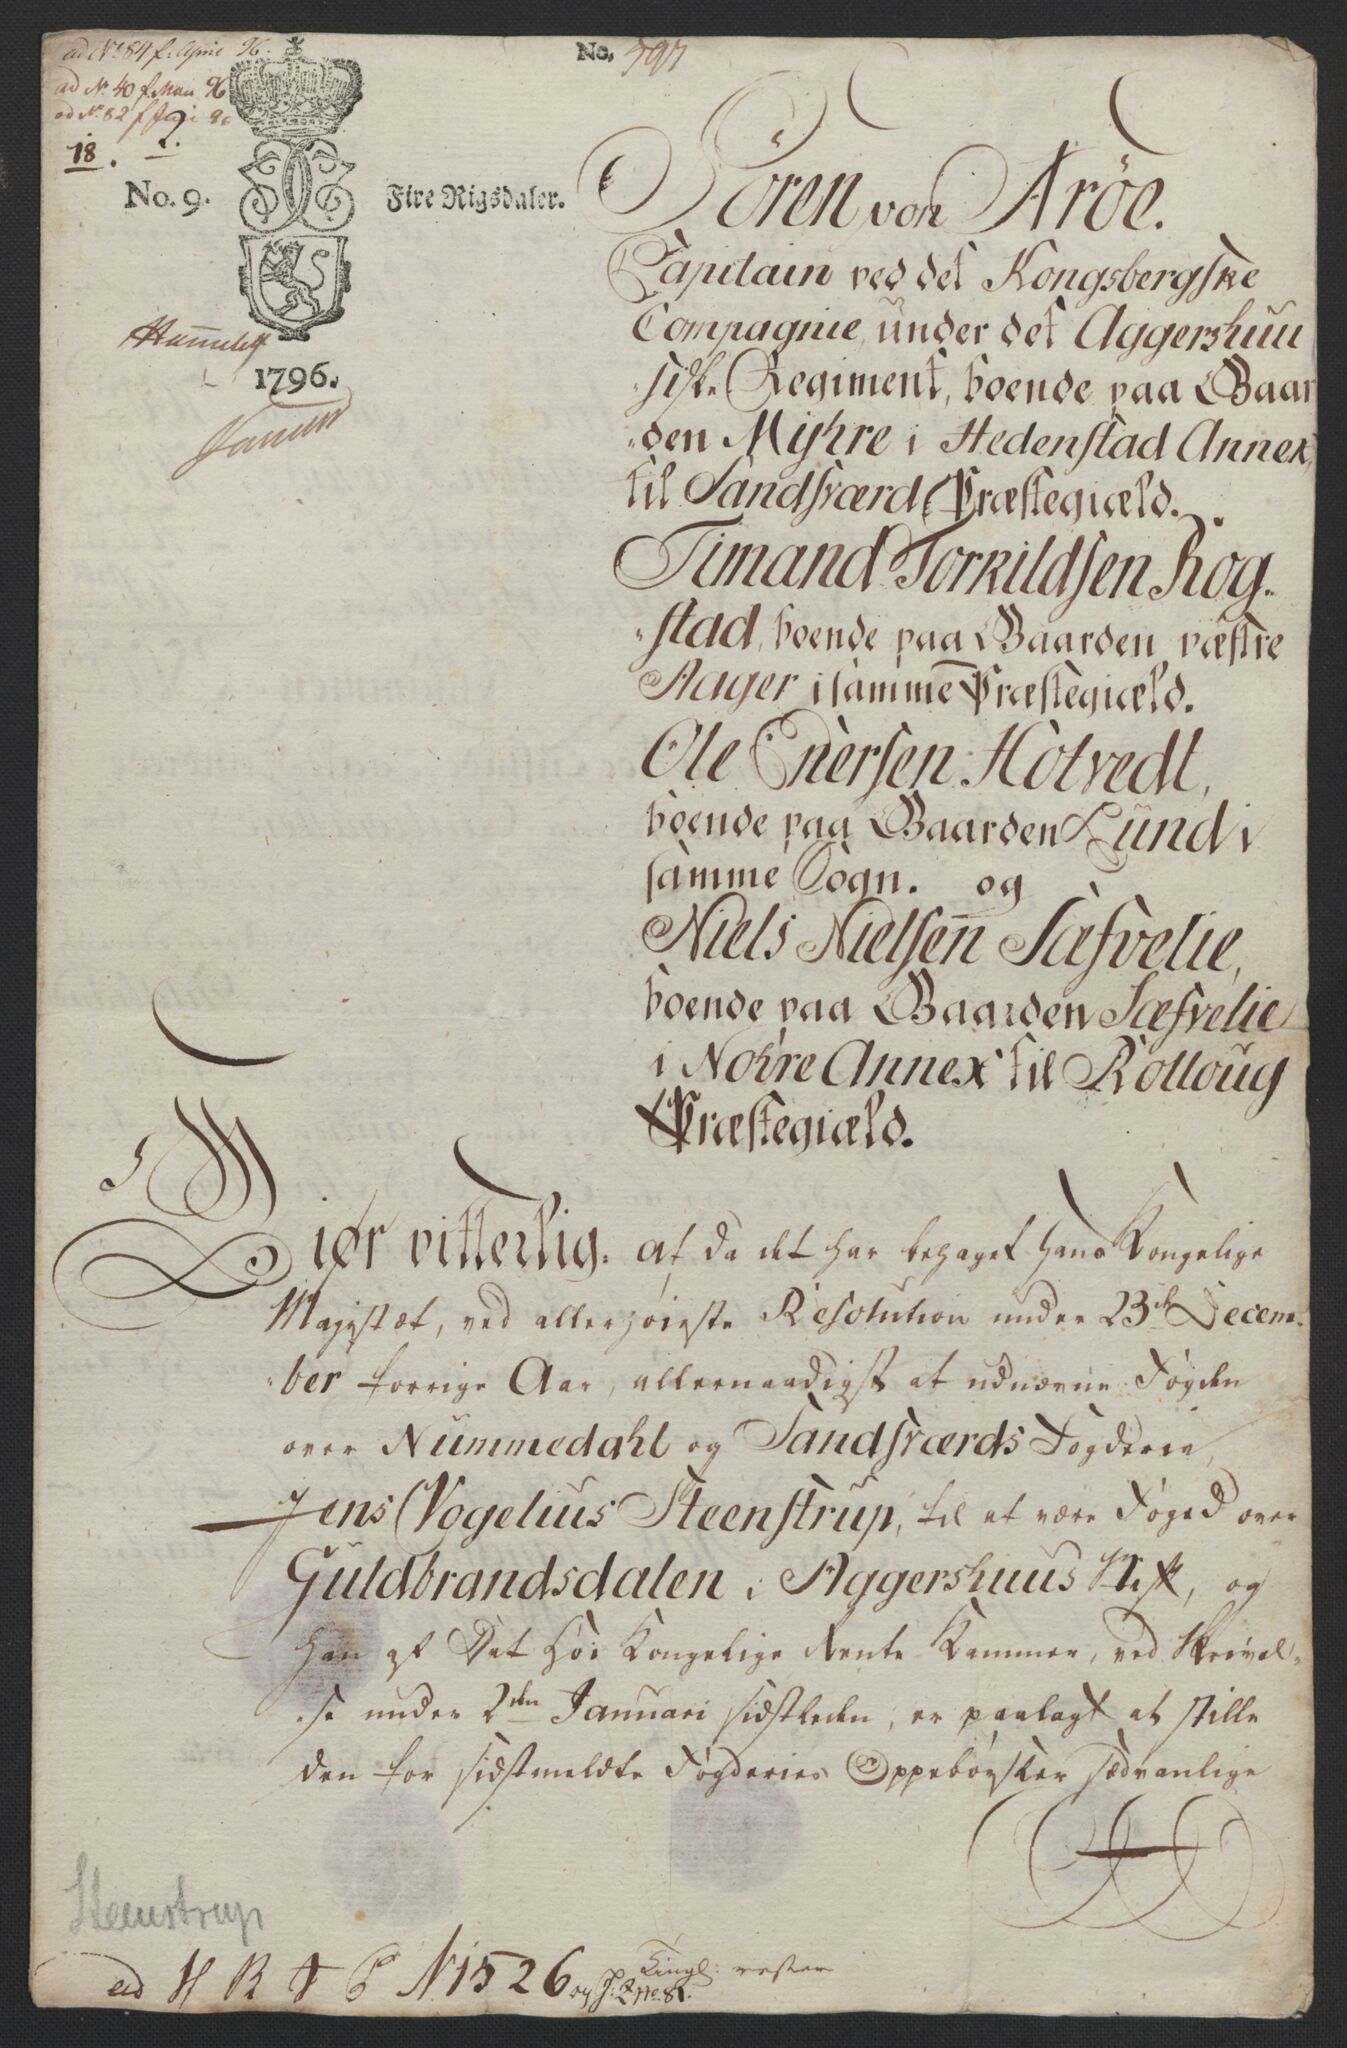 ad No 84 f. April 96.
ad No. 40 f. Maii 96
ad No. 82 f. Juni 96
18. 2.
No. 797
No. 9. Fire Rigsdaler.
1796.
Sören von Aröe.
Capitain ved det Kongsbergske
Compagnie under det Aggershuu
siske Regiment, boende paa Gaar
den Myhre i Hedenstad Annex,
til Sandsværd Præstegiæld.
Timand Torkildsen Rog-
stad, boende paa Gaarden væstre
Aager i samme Præstegiæld.
Ole Enersen Hotvedt,
boende paa Gaarden Lund i
samme Sogn. og
Niels Nielsen Sæfvelie,
boende paa Gaarden Sæfvelie
i Nohre Annex til Rolloug
Præstegiæld.
Giør vitterlig: at da det har behaget Hans Kongelige
Majestæt, ved allerhøieste Resolution under 23de Decem-
ber forrige Aar, allernaadigst at udnævne Fogden
over Nummedahl og Sandsværds Fogderie,
Jens Vogelius Steenstrup, til at være Foged over
Guldbrandsdalen i Aggershuus Stift, og
han af Det Høi Kongelige Rente Kammer, ved Skrivel-
se under 2den Januari sidstleden, er paalagt at stille
den for sidstmeldte Fogderies Oppebørsler sædvanlige
Steenstrup
ad N R T C No 1526